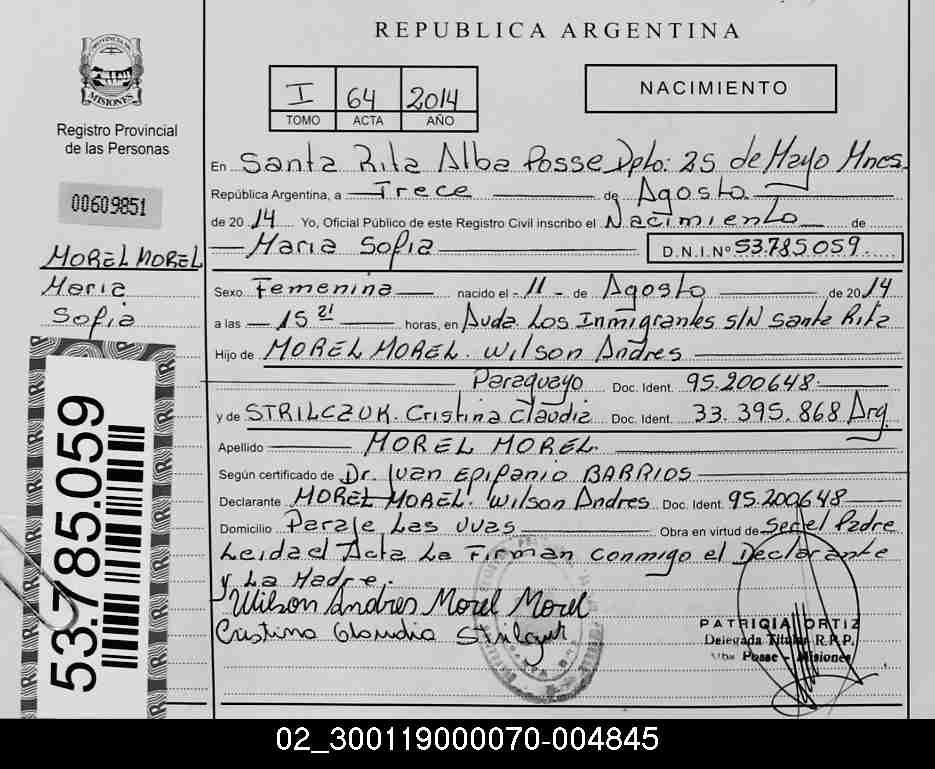 REPUBLICA ARGENTINA
PROVINCIA DE
MISIONES
Registro Provincial
de las Personas
00609851
MOREL MOREL
Maria
Sofia
53.785.059
I 64 2014
TOMO ACTA AÑO
NACIMIENTO
En Santa Rita Alba Posse Dpto: 25 de Mayo Mnes.
República Argentina, a Trece de Agosto
de 2014 Yo, Oficial Público de este Registro Civil inscribo el Nacimiento de
Maria Sofia D.N.I.Nº 53.785.059
Sexo Femenina nacido el -11- de Agosto de 2014
a las 15 21 horas, en Avda. Los Inmigrantes s/N Santa Rita
Hijo de MOREL MOREL. Wilson Andres
Paraguayo Doc. Ident. 95.200.648
y de STRILCZUK. Cristina Claudia Doc. Ident. 33.395.868 Arg.
Apellido MOREL MOREL
Según certificado de Dr. Juan Epifanio BARRIOS
Declarante MOREL MOREL. Wilson Andres Doc. Ident. 95.200648
Domicilio Paraje Las Uvas Obra en virtud de Ser el Padre
Leida el Acta La Firman conmigo el Declarante
y La Madre.
Wilson Andres Morel Morel
Cristina Claudia Strilczuk
PATRICIA ORTIZ
Delegada Titular R.P.P.
Alba Posse - Misiones
02_300119000070-004845